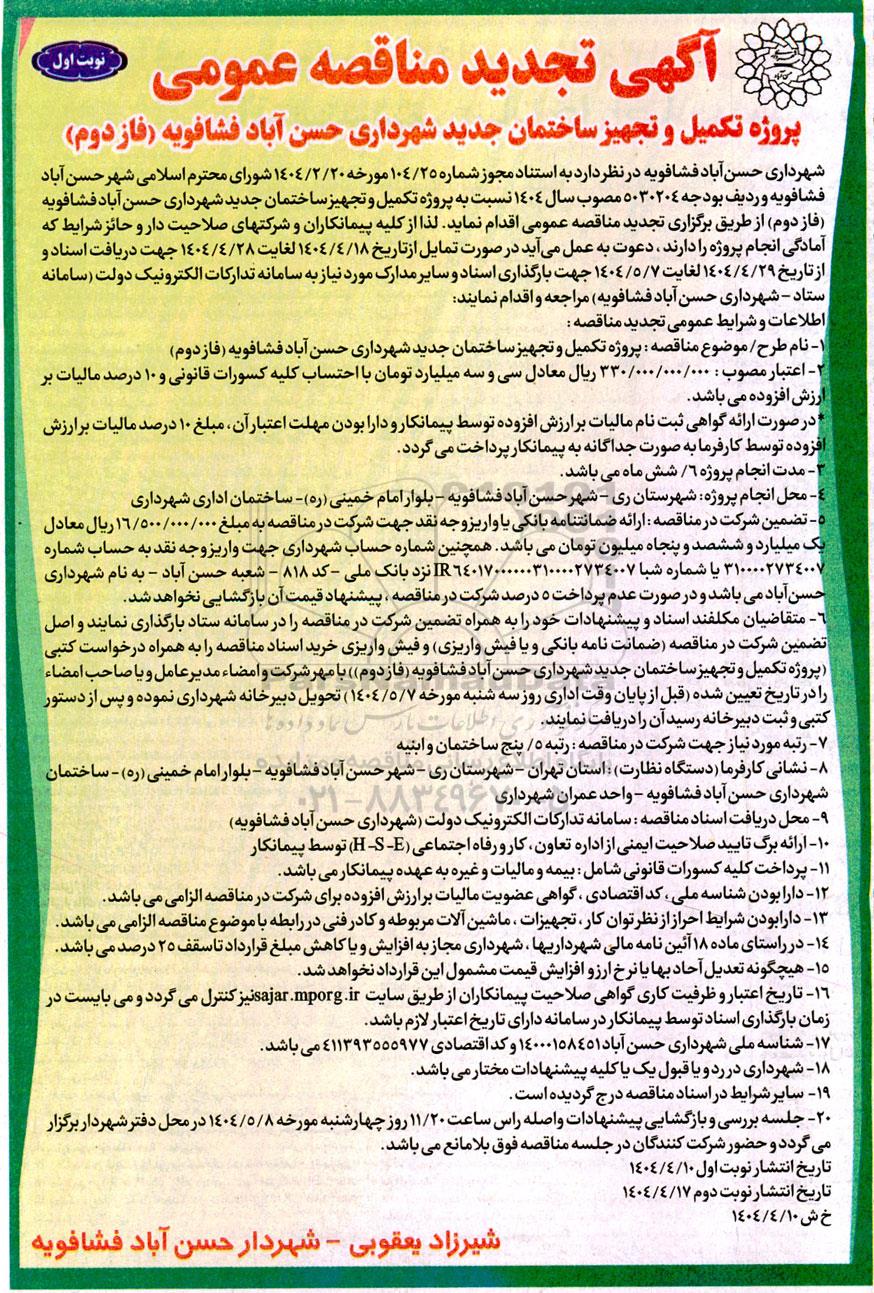 آگهی تجدید مناقصه عمومی
نوبت اول
پروژه تکمیل و تجهیز ساختمان جدید شهرداری حسن آباد فشافویه (فاز دوم)
شهرداری حسن آباد فشافویه در نظر دارد به استناد مجوز شماره ۱۰۴/۲۵ مورخه ۱۴۰۴/۲/۲۰ شورای محترم اسلامی شهر حسن آباد
فشافویه و ردیف بودجه ۵۰۳۰۲۰۴ مصوب سال ۱۴۰۴ نسبت به پروژه تکمیل و تجهیز ساختمان جدید شهرداری حسن آباد فشافویه
(فاز دوم) از طریق برگزاری تجدید مناقصه عمومی اقدام نماید. لذا از کلیه پیمانکاران و شرکتهای صلاحیت دار و حائز شرایط که
آمادگی انجام پروژه را دارند، دعوت به عمل می‌آید در صورت تمایل از تاریخ ۱۴۰۴/۴/۱۸ لغایت ۱۴۰۴/۴/۲۸ جهت دریافت اسناد و
از تاریخ ۱۴۰۴/۴/۲۹ لغایت ۱۴۰۴/۵/۷ جهت بارگذاری اسناد و سایر مدارک مورد نیاز به سامانه تدارکات الکترونیک دولت (سامانه
ستاد - شهرداری حسن آباد فشافویه) مراجعه و اقدام نمایند:
اطلاعات و شرایط عمومی تجدید مناقصه :
۱- نام طرح/ موضوع مناقصه : پروژه تکمیل و تجهیز ساختمان جدید شهرداری حسن آباد فشافویه (فاز دوم)
۲- اعتبار مصوب : ۳۳۰/۰۰۰/۰۰۰/۰۰۰ ریال معادل سی و سه میلیارد تومان با احتساب کلیه کسورات قانونی و ۱۰ درصد مالیات بر
ارزش افزوده می باشد.
*در صورت ارائه گواهی ثبت نام مالیات بر ارزش افزوده توسط پیمانکار و دارا بودن مهلت اعتبار آن، مبلغ ۱۰ درصد مالیات بر ارزش
افزوده توسط کارفرما به صورت جداگانه به پیمانکار پرداخت می گردد.
۳- مدت انجام پروژه ۶/ شش ماه می باشد.
۴- محل انجام پروژه: شهرستان ری - شهر حسن آباد فشافویه - بلوار امام خمینی (ره)- ساختمان اداری شهرداری
۵- تضمین شرکت در مناقصه : ارائه ضمانتنامه بانکی یا واریز وجه نقد جهت شرکت در مناقصه به مبلغ ۱۶/۵۰۰/۰۰۰/۰۰۰ ریال معادل
یک میلیارد و ششصد و پنجاه میلیون تومان می باشد. همچنین شماره حساب شهرداری جهت واریز وجه نقد به حساب شماره
۳۱۰۰۰۰۲۷۳۴۰۰۷ یا شماره شبا IR۶۴۰۱۷۰۰۰۰۰۰۳۱۰۰۰۰۲۷۳۴۰۰۷ نزد بانک ملی - کد ۸۱۸ - شعبه حسن آباد - به نام شهرداری
حسن آباد می باشد و در صورت عدم پرداخت ۵ درصد شرکت در مناقصه، پیشنهاد قیمت آن بازگشایی نخواهد شد.
۶- متقاضیان مکلفند اسناد و پیشنهادات خود را به همراه تضمین شرکت در مناقصه را در سامانه ستاد بارگذاری نمایند و اصل
تضمین شرکت در مناقصه (ضمانت نامه بانکی و یا فیش واریزی) و فیش واریزی خرید اسناد مناقصه را به همراه درخواست کتبی
(پروژه تکمیل و تجهیز ساختمان جدید شهرداری حسن آباد فشافویه (فاز دوم)) با مهر شرکت و امضاء مدیرعامل و یا صاحب امضاء
را در تاریخ تعیین شده (قبل از پایان وقت اداری روز سه شنبه مورخه ۱۴۰۴/۵/۷) تحویل دبیرخانه شهرداری نموده و پس از دستور
کتبی و ثبت دبیرخانه رسید آن را دریافت نمایند.
۷- رتبه مورد نیاز جهت شرکت در مناقصه : رتبه ۵/ پنج ساختمان و ابنیه
۸- نشانی کارفرما (دستگاه نظارت) : استان تهران - شهرستان ری - شهر حسن آباد فشافویه - بلوار امام خمینی (ره) - ساختمان
شهرداری حسن آباد فشافویه - واحد عمران شهرداری
۹- محل دریافت اسناد مناقصه : سامانه تدارکات الکترونیک دولت (شهرداری حسن آباد فشافویه)
۱۰- ارائه برگ تایید صلاحیت ایمنی از اداره تعاون، کار و رفاه اجتماعی (H-S-E) توسط پیمانکار
۱۱- پرداخت کلیه کسورات قانونی شامل : بیمه و مالیات و غیره به عهده پیمانکار می باشد.
۱۲- دارا بودن شناسه ملی ، کد اقتصادی ، گواهی عضویت مالیات بر ارزش افزوده برای شرکت در مناقصه الزامی می باشد.
۱۳- دارا بودن شرایط احراز از نظر توان کار ، تجهیزات ، ماشین آلات مربوطه و کادر فنی در رابطه با موضوع مناقصه الزامی می باشد.
۱۴- در راستای ماده ۱۸ آئین نامه مالی شهرداریها ، شهرداری مجاز به افزایش و یا کاهش مبلغ قرارداد تا سقف ۲۵ درصد می باشد.
۱۵- هیچگونه تعدیل آحاد بها یا نرخ ارز و افزایش قیمت مشمول این قرارداد نخواهد شد.
۱۶- تاریخ اعتبار و ظرفیت کاری گواهی صلاحیت پیمانکاران از طریق سایت sajar.mporg.ir نیز کنترل می گردد و می بایست در
زمان بارگذاری اسناد توسط پیمانکار در سامانه دارای تاریخ اعتبار لازم باشد.
۱۷- شناسه ملی شهرداری حسن آباد ۱۴۰۰۰۱۵۸۴۵۱ و کد اقتصادی ۴۱۱۳۹۳۵۵۵۹۷۷ می باشد.
۱۸- شهرداری در رد و یا قبول یک یا کلیه پیشنهادات مختار می باشد.
۱۹- سایر شرایط در اسناد مناقصه درج گردیده است.
۲۰- جلسه بررسی و بازگشایی پیشنهادات واصله راس ساعت ۱۱/۲۰ روز چهارشنبه مورخه ۱۴۰۴/۵/۸ در محل دفتر شهردار برگزار
می گردد و حضور شرکت کنندگان در جلسه مناقصه فوق بلامانع می باشد.
تاریخ انتشار نوبت اول ۱۴۰۴/۴/۱۰
تاریخ انتشار نوبت دوم ۱۴۰۴/۴/۱۷
خ ش ۱۴۰۴/۴/۱۰
شیرزاد یعقوبی - شهردار حسن آباد فشافویه